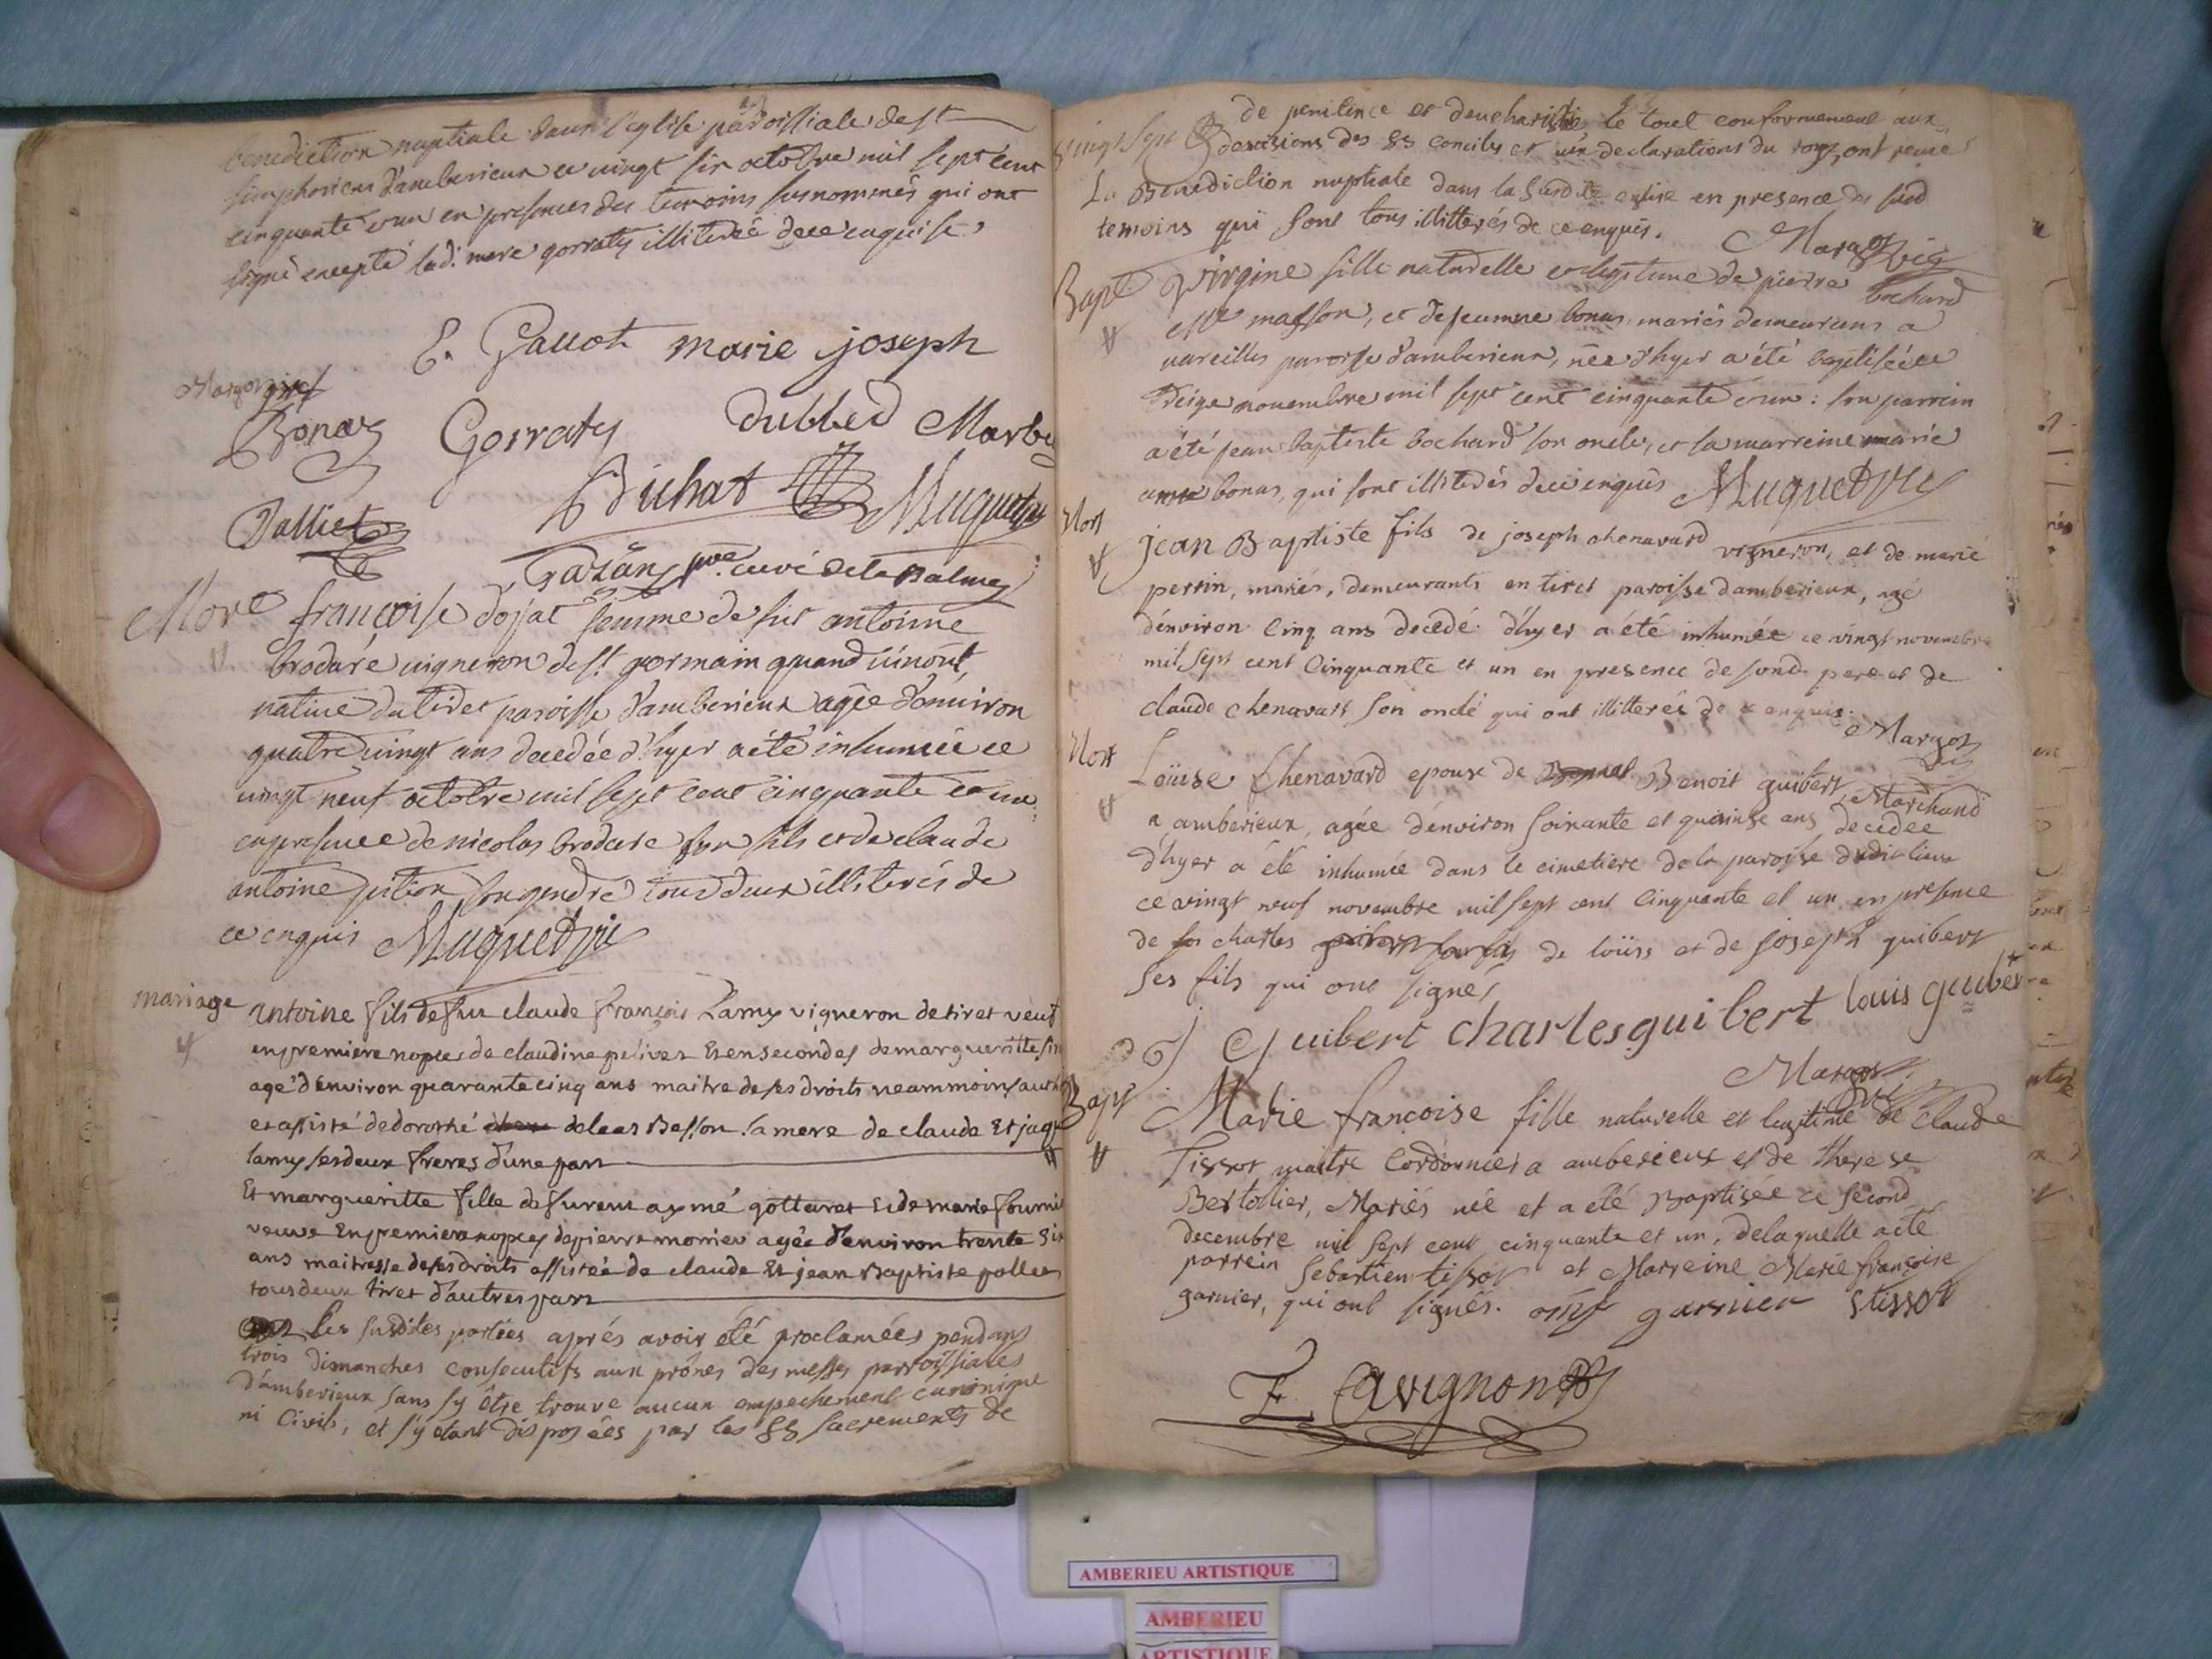 benediction nuptiale dans l'eglise paroissiale de st
simphorien d'amberieux ce vingt six octobre mil sept cent
cinquante et un en presences des temoins susnommés qui ont
signé excepté lad. mere gorraty illiterée de ce enquise.
E. Gallot marie joseph
Margot vic
Bonaz Gorraty dubled
Bichat Muguet
Palliet
curé de la Balme
Mort françoise dossat femme de fut antoine
brodare vigneron de st. germain quand vivoit,
native du tiret paroisse d'amberieux agée d'environ
quatre vingt ans decedée d'hyer a été inhumée ce
vingt neuf octobre mil sept cent cinquante et un
en presence de nicolas brodare son fils et de claude
antoine son gendre tous deux illiterés de
ce enquis Muguet vic
mariage antoine fils de fut claude françois Lamy vigneron de tiret veuf
en premiere nopces de claudine et en secondes de margueritte
agé d'environ quarante cinq ans maitre de ses droits neammoins
et assisté de dorothé Besson sa mere de claude Et
lamy ses deux freres d'une part
Et marguerite fille de gottaret et de marie
veuve En premiere nopces de pierre monier agée d'environ trente
ans maitresse de ses droits assistée de claude Et jean Baptiste
tous deux tiret d'autres part
Les susdites parties aprés avoir été proclamées pendant
trois dimanches consecutifs aux prônes des messes parroissiales
d'amberieux sans s'y être trouvé aucun empechement canonique
ni Civils, et s'y etant disposées par les SS sacrements de
de penitence et deucharistie le tout conformement aux
vingt sept decisions des SS conciles et aux declarations du roy, ont recue
La Benediction nuptiale dans la susdite eglise en presence des susd
temoins qui sont tous illitterés de ce enquis. Margot vic
Bapt virgine fille naturelle et legitime de pierre bochard
masson, et de jeanne bonas mariés demeurans a
vareilles paroisse d'amberieux, née d'hyer a été baptisée ce
treize novembre mil sept cent cinquante et un : son parrein
a été jean baptiste bochard son oncle, et sa marreine marie
bonas, qui sont illiterés de ce enquis Muguet vic
Mort jean Baptiste fils de joseph chenavard vigneron, et de marie
perrin, mariés, demeurants en tiret paroisse d'amberieux, agé
d'environ Cinq ans decedé d'hyer a été inhumée ce vingt novembre
mil sept cent Cinquante et un en presence de sond. pere et de
claude chenavard son oncle qui ont illitterés de ce enquis.
Margot vic
Mort Loüise Chenavard epouse de Benoit guibert Marchand
a amberieux, agée d'environ soixante et quinse ans decedée
d'hyer a été inhumée dans le cimetiere de la paroisse dudit lieux
ce vingt neuf novembre mil sept cent Cinquante et un en presence
de charles de loüis et de joseph guibert
ses fils qui ont signés
J Guibert charles guibert louis guibert
Margot vic
Bapt Marie françoise fille naturelle et legitime de Claude
Tissot maitre Cordonnier a amberieux et de therese
Bertolier, Mariés née et a eté Baptisée ce second
decembre mil sept cent cinquante et un, de laquelle a eté
parrein Sebastien tissot et Marreine Marie françoise
garnier, qui ont signés. garnier Stissot
AMBERIEU ARTISTIQUE
AMBERIEU
ARTISTIQUE